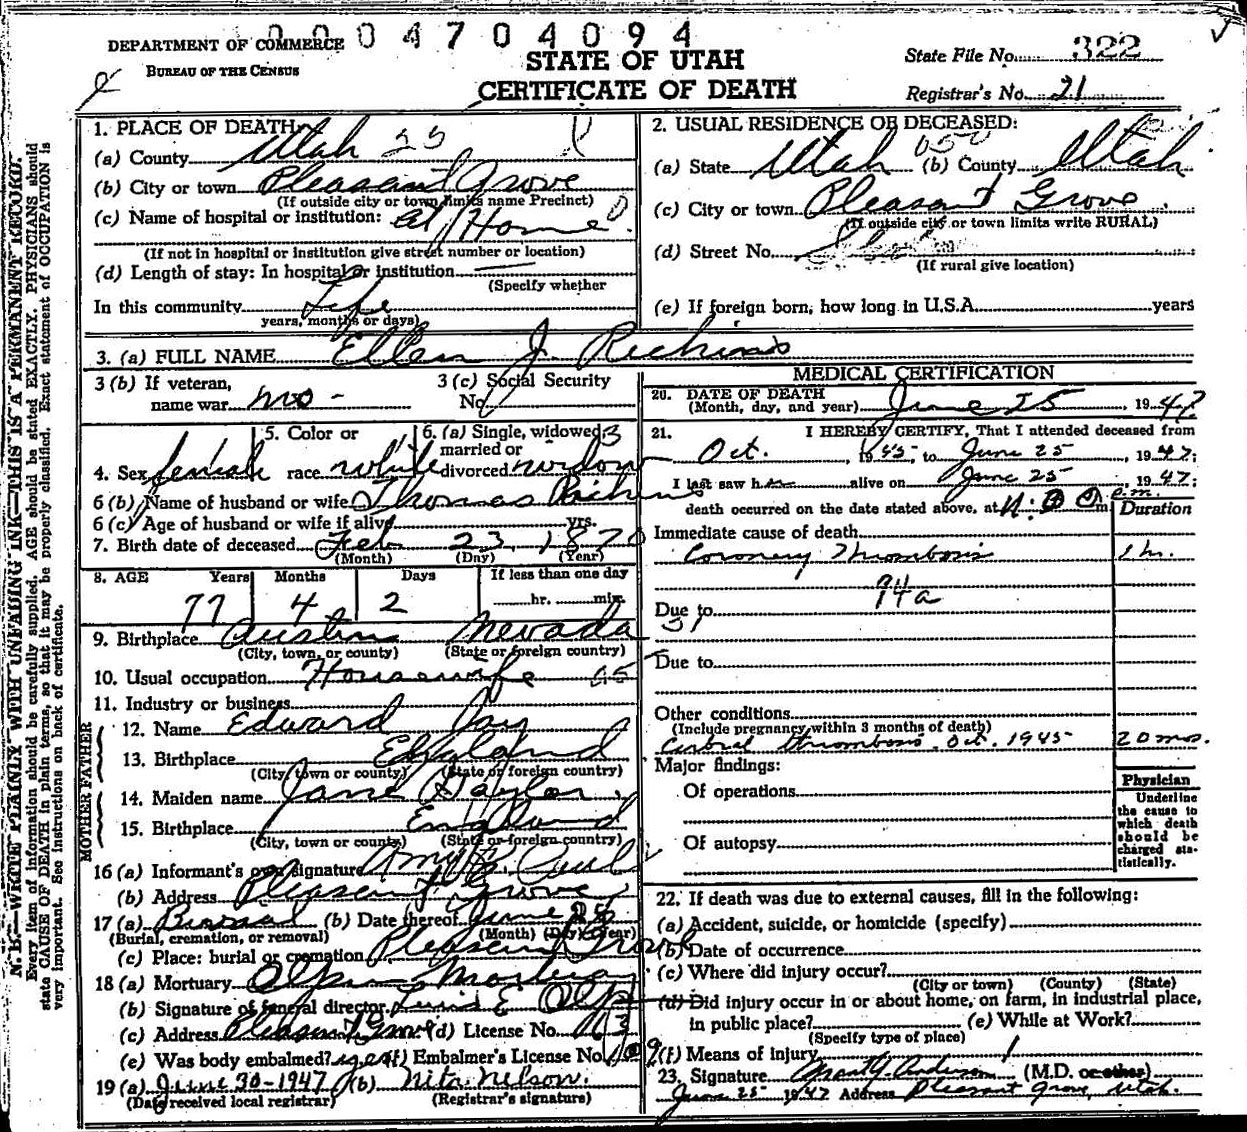 0004704094
DEPARTMENT OF COMMERCE
BUREAU OF THE CENSUS
STATE OF UTAH
CERTIFICATE OF DEATH
State File No. 322
Registrar's No. 21
N. B.—WRITE PLAINLY WITH UNFADING INK—THIS IS A PERMANENT RECORD.
Every item of information should be carefully supplied. AGE should be stated EXACTLY. PHYSICIANS should
state CAUSE OF DEATH in plain terms, so that it may be properly classified. Exact statement of OCCUPATION is
very important. See instructions on back of certificate.
1. PLACE OF DEATH:
(a) County Utah 25
(b) City or town Pleasant Grove
(If outside city or town limits name Precinct)
(c) Name of hospital or institution: at Home
(If not in hospital or institution give street number or location)
(d) Length of stay: In hospital or institution
(Specify whether
In this community Life
years, months or days)
2. USUAL RESIDENCE OF DECEASED:
(a) State Utah (b) County Utah
(c) City or town Pleasant Grove
(If outside city or town limits write RURAL)
(d) Street No.
(If rural give location)
(e) If foreign born, how long in U.S.A. years
3. (a) FULL NAME Ellen J. Richins
3 (b) If veteran,
name war no -
3 (c) Social Security
No.
4. Sex female
5. Color or
race white
6. (a) Single, widowed 3
married or
divorced widow
6 (b) Name of husband or wife Thomas Richins
6 (c) Age of husband or wife if alive yrs.
7. Birth date of deceased Feb 23, 1870
(Month) (Day) (Year)
8. AGE Years Months Days If less than one day
77 4 2 hr. min.
9. Birthplace Austin Nevada
(City, town, or county) (State or foreign country)
10. Usual occupation Housewife
11. Industry or business
FATHER
12. Name Edward Jay
13. Birthplace England
(City, town or county) (State or foreign country)
MOTHER
14. Maiden name Jane Saylor
15. Birthplace England
(City, town or county) (State or foreign country)
16 (a) Informant's own signature Amy
(b) Address Pleasant Grove
17 (a) Burial (b) Date thereof June 28
(Burial, cremation, or removal) (Month) (Day) (Year)
(c) Place: burial or cremation Pleasant Grove
18 (a) Mortuary Olpin Mortuary
(b) Signature of funeral director E Olpin
(c) Address Pleasant Grove (d) License No.
(e) Was body embalmed? yes (f) Embalmer's License No.
19 (a) June 30-1947 (b) Nita Nelson.
(Date received local registrar) (Registrar's signature)
MEDICAL CERTIFICATION
20. DATE OF DEATH
(Month, day, and year) June 25, 1947
21. I HEREBY CERTIFY, That I attended deceased from
Oct., 1945, to June 25, 1947;
I last saw h alive on June 25, 1947;
death occurred on the date stated above, at m
Duration
Immediate cause of death
Coronery Thrombosis 1 hr.
94a
Due to
Due to
Other conditions
(Include pregnancy within 3 months of death)
Cerbral thrombosis. Oct. 1945 20 mos.
Major findings:
Of operations
Of autopsy
Physician
Underline
the cause to
which death
should be
charged sta-
tistically.
22. If death was due to external causes, fill in the following:
(a) Accident, suicide, or homicide (specify)
(b) Date of occurrence
(c) Where did injury occur?
(City or town) (County) (State)
(d) Did injury occur in or about home, on farm, in industrial place,
in public place? (e) While at Work?
(Specify type of place)
(f) Means of injury
23. Signature Grant Y. Anderson (M.D. or other)
June 25 1947 Address Pleasant Grove, Utah.